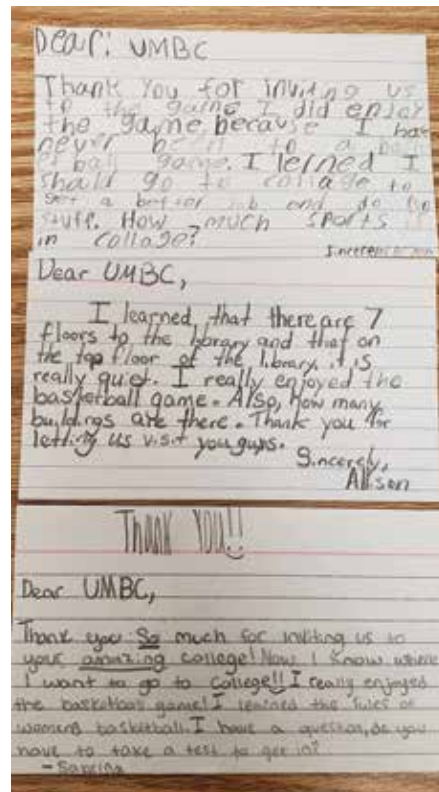 Dear: UMBC
Thank You for inviting us
to the game I did enjoy
the game, because I have
never been to a
ball game. I lerned I
should go to collage to
get a better job and do
stuff. How much sports is
in collage?
Sincerely
Dear UMBC,
I learned that there are 7
floors to the library and that on
the top floor of the library, it is
really quiet. I really enjoyed the
basketball game. Also, how many
buildings are there. Thank you for
letting us visit you guys.
Sincerely,
Allison
THANK YOU!!
Dear UMBC,
Thank you So much for inviting us to
your amazing college! Now I know where
I want to go to college!! I really enjoyed
the basketball game! I learned the rules of
womens basketball. I have a question, do you
have to take a test to get in?
- Sabrina